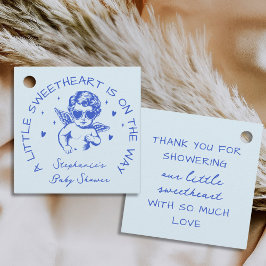 A LITTLE SWEETHEART IS ON THE WAY
Stephanie's
Baby Shower
THANK YOU FOR
SHOWERING
our little
sweetheart
WITH SO MUCH
LOVE